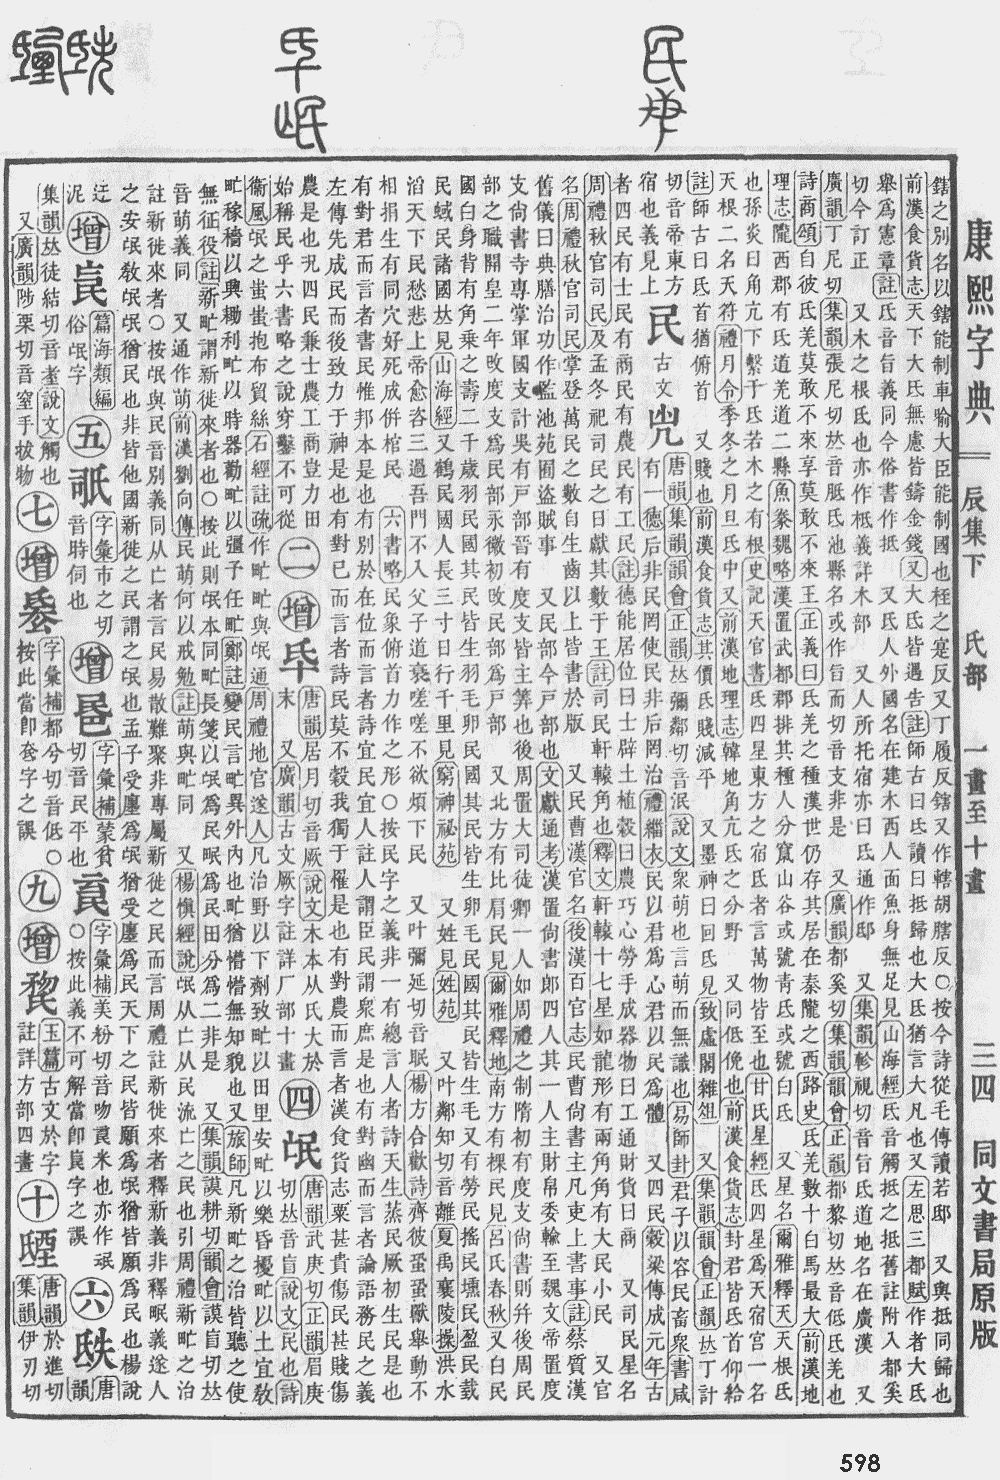 康熙字典 辰集下 氏部 一畫至十畫 三四 同文書局原版
鎋之別名以鎋能制車喻大臣能制國也柽之寔反又丁履反鎋又作轄胡瞎反○按今詩從毛傳讀若邸 又與抵同歸也
前漢食貨志天下大氐無慮皆鑄金錢又大氐皆遇告註師古曰氐讀曰抵歸也大氐猶言大凡也又左思三都賦作者大氐
舉爲憲章註氐音旨義同今俗書作抵 又氐人外國名在建木西人面魚身無足見山海經氐音觸抵之抵舊註附入都奚
切今訂正 又木之根氐也亦作柢義詳木部 又人所托宿亦曰氐通作邸 又集韻軫視切音旨氐道地名在廣漢 又
廣韻丁尼切集韻張尼切𠀤音胝氐池縣名或作旨而切音支非是 又廣韻都奚切集韻韻會正韻都黎切𠀤音低氐羌也
詩商頌自彼氐羌莫敢不來享莫敢不來王正義曰氐羌之種漢世仍存其居在秦隴之西路史氐羌數十白馬最大前漢地
理志隴西郡有氐道羌道二縣魚豢魏略漢置武都郡排其種人分竄山谷或號靑氐或號白氐 又星名爾雅釋天天根氐
也孫炎曰角亢下繫于氐若木之有根史記天官書氐四星東方之宿氐者言萬物皆至也甘氏星經氐四星爲天宿宮一名
天根二名天符禮月令季冬之月旦氐中又前漢地理志韓地角亢氐之分野 又同低俛也前漢食貨志封君皆氐首仰給
註師古曰氐首猶俯首 又賤也前漢食貨志其價氐賤減平 又墨神曰回氐見致虛閣雜俎 又集韻韻會正韻𠀤丁計
切音帝東方宿也義見上
民 古文
唐韻集韻韻會正韻𠀤彌鄰切音泯說文衆萌也言萌而無識也易師封君子以容民畜衆書咸
有一德后非民罔使民非后罔治禮緇衣民以君爲心君以民爲體 又四民穀梁傳成元年古
者四民有士民有商民有農民有工民註德能居位曰士辟土植穀曰農巧心勞手成器物曰工通財貨曰商 又司民星名
周禮秋官司民及孟冬祀司民之日獻其數于王註司民軒轅角也釋文軒轅十七星如龍形有兩角角有大民小民 又官
名周禮秋官司民掌登萬民之數自生齒以上皆書於版 又民曹漢官名後漢百官志民曹尙書主凡吏上書事註蔡質漢
舊儀曰典膳治功作監池苑囿盜賊事 又民部今戸部也文獻通考漢置尙書郎四人其一人主財帛委輸至魏文帝置度
支尙書寺專掌軍國支計吳有戸部晉有度支皆主筭也後周置大司徒卿一人如周禮之制隋初有度支尙書則幷後周民
部之職開皇二年攺度支爲民部永徽初攺民部爲戸部 又北方有比肩民見爾雅釋地南方有棵民見呂氏春秋又白民
國白身背有角乘之壽二千歳羽民國其民皆生羽毛卵民國其民皆生卵 又毛民國其民皆生毛又有勞民搖民壎民盈民臷
民蜮民諸國𠀤見山海經又鶴民國人長三寸日行千里見窮神祕苑 又姓見姓苑 又叶鄰知切音離夏禹襄陵操洪水
滔天下民愁悲上帝愈咨三過吾門不入父子道衰嗟嗟不欲煩下民 又叶彌延切音眠楊方合歡詩齊彼蛩蛩獸舉動不
相捐生有同穴好死成倂棺民 六書略民象俯首力作之形○按民字之義毛非一有總言人者詩天生蒸民厥初生民是也
有對君而言者書民惟邦本是也有別於在位而言者詩宜民宜人註人謂臣民謂衆庶是也有對幽而言者論語務民之義
左傳先成民而後致力于神是也有對己而言者詩民莫不穀我獨于罹是也有對農而言者漢食貨志粟甚貴傷民甚賤傷
農是也况四民兼士農工商豈力田始稱民乎六書略之說穿鑿不可從
二
增氒
唐韻居月切音厥說文木本从氏大於末 又廣韻古文厥字註詳厂部十畫
四
氓
唐韻武庚切正韻眉庚切𠀤音盲說文民也詩
衞風氓之蚩蚩抱布貿絲石經註疏作甿甿與氓通周禮地官遂人凡治野以下劑致甿以田里安甿以樂昏擾甿以土宜敎
甿稼穡以興耡利甿以時器勸甿以彊予任甿鄭註變民言甿異外內也甿猶懵懵無知貌也又旅師凡新甿之治皆聽之使
無征役註新甿謂新徙來者也○按此則氓本同甿長箋以氓爲民甿爲民田分爲二非是 又集韻謨耕切韻會謨盲切𠀤
音萌義同 又通作萌前漢劉向傳民萌何以戒勉註萌與甿同 又楊愼經說氓从亡从民流亡之民也引周禮新甿之治
註新徙來者○按氓與民音別義同从亡者言民易散難聚非專屬新徙之民而言周禮註新徙來者釋新義非釋甿義遂人
之安氓敎氓氓猶民也非皆他國新徙之民謂之氓也孟子受廛爲氓猶受廛爲民天下之民皆願爲氓猶皆願爲民也楊說
迂泥
增
篇海類編俗氓字
五
字彙市之切音時伺也
增
字彙補蒙貧切音民平也
字彙補美粉切音吻民米也亦作泯○按此義不可解當卽字之譌
六
唐韻集韻𠀤徒結切音耊說文觸也
又廣韻陟栗切音窒手拔物
七
增
字彙補都兮切音低○按此當卽奃字之譌
九
增
玉篇古文於字註詳方部四畫
十
唐韻於進切集韻伊刃切
598